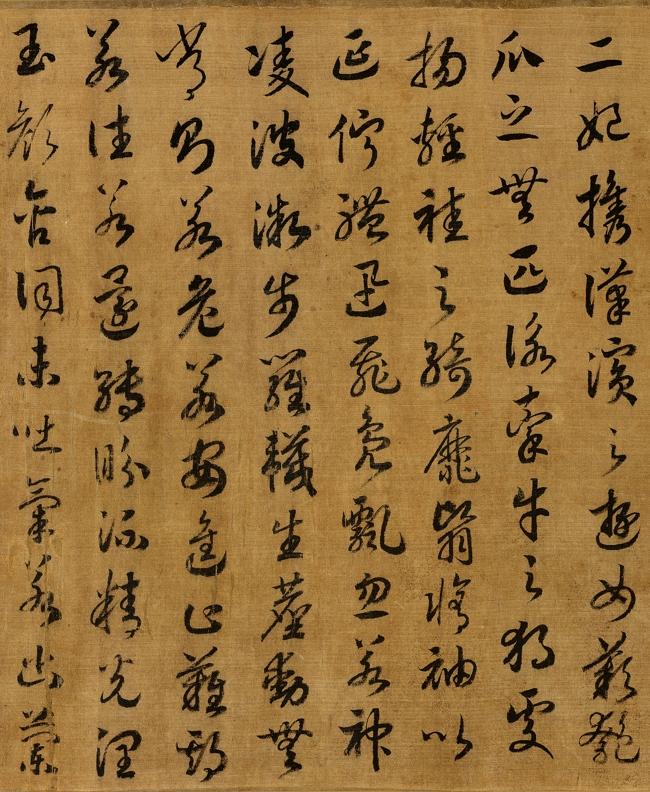 二妃攜漢濱之遊女歎匏
瓜之無匹詠牽牛之獨處
揚輕袿之綺靡翳脩袖以
延佇體迅飛鳧飄忽若神
凌波微步羅韈生塵動無
常則若危若安進止難期
若往若還轉眄流精光潤
玉顏含詞未吐氣若幽蘭